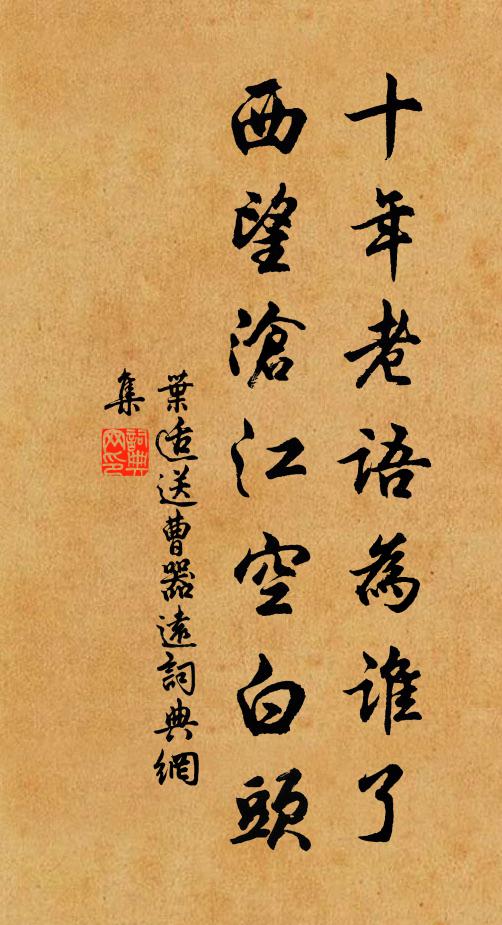 十年老語為誰了
西望滄江空白頭
葉适送曹器遠詞典網
集
詞典
网印